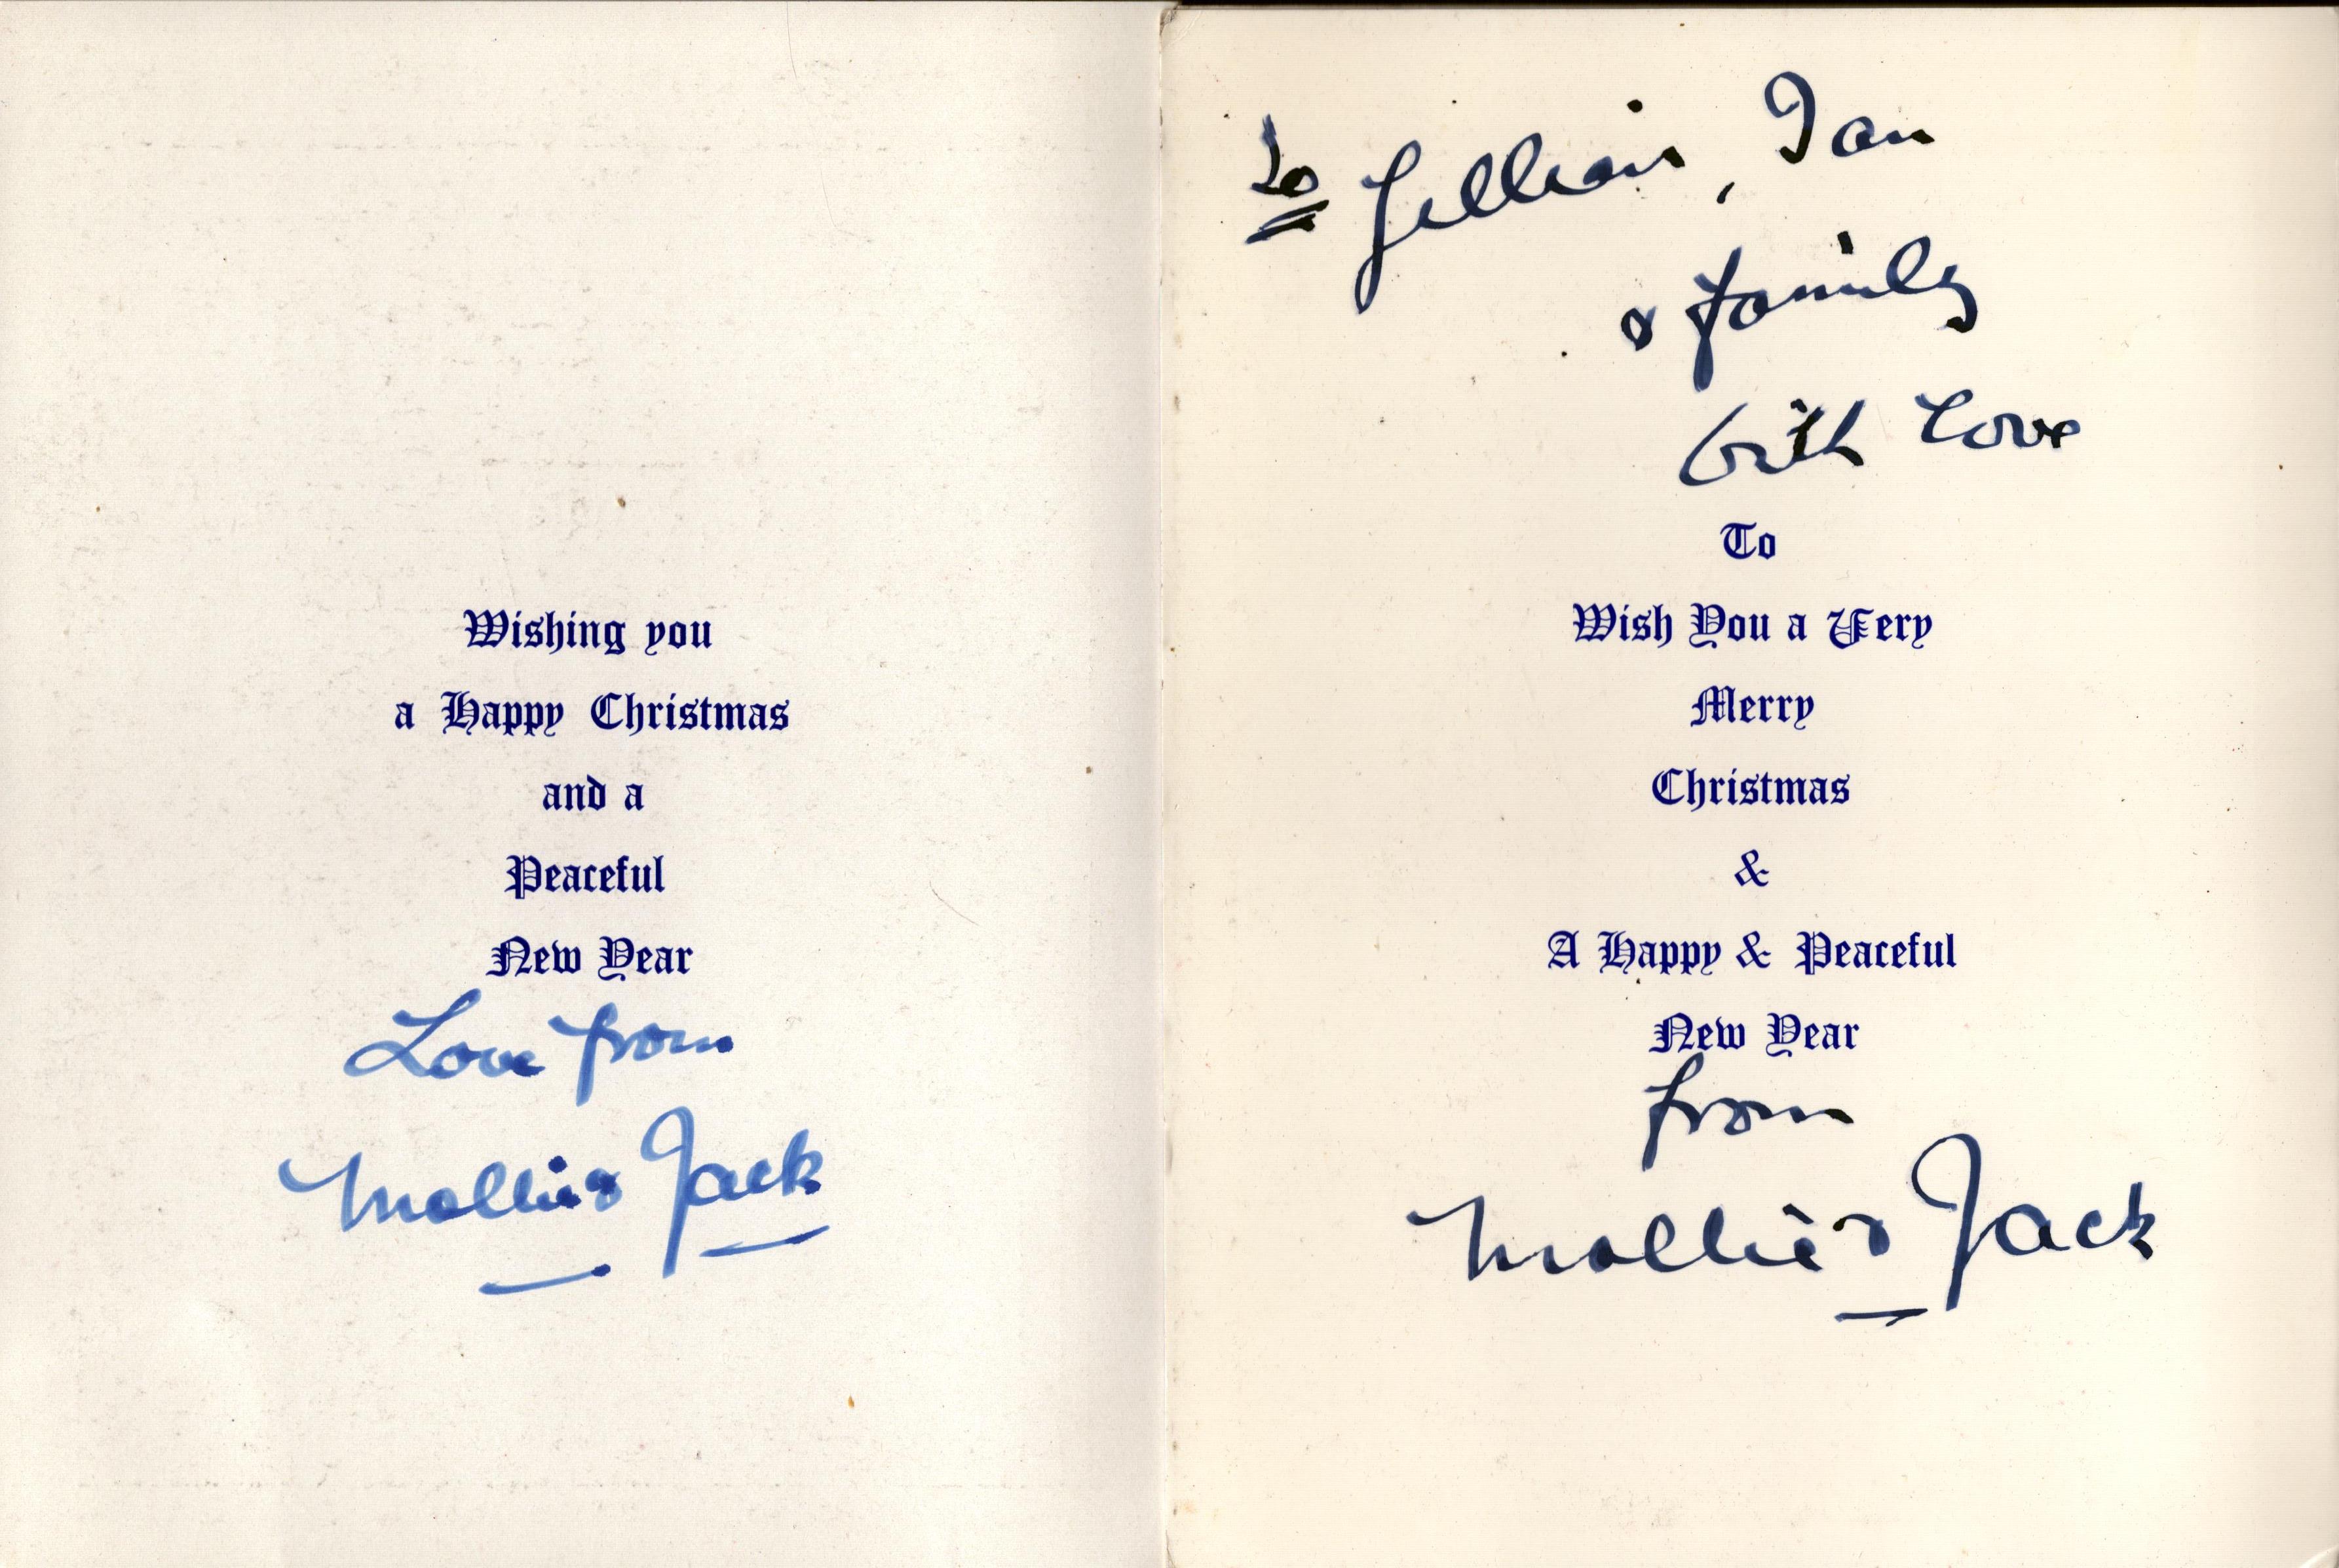 Wishing you
a Happy Christmas
and a
Peaceful
New Year
Love from
Mollie & Jack
To Gillian, Ian
& family
with love
To
Wish You a Very
Merry
Christmas
&
A Happy & Peaceful
New Year
from
Mollie & Jack